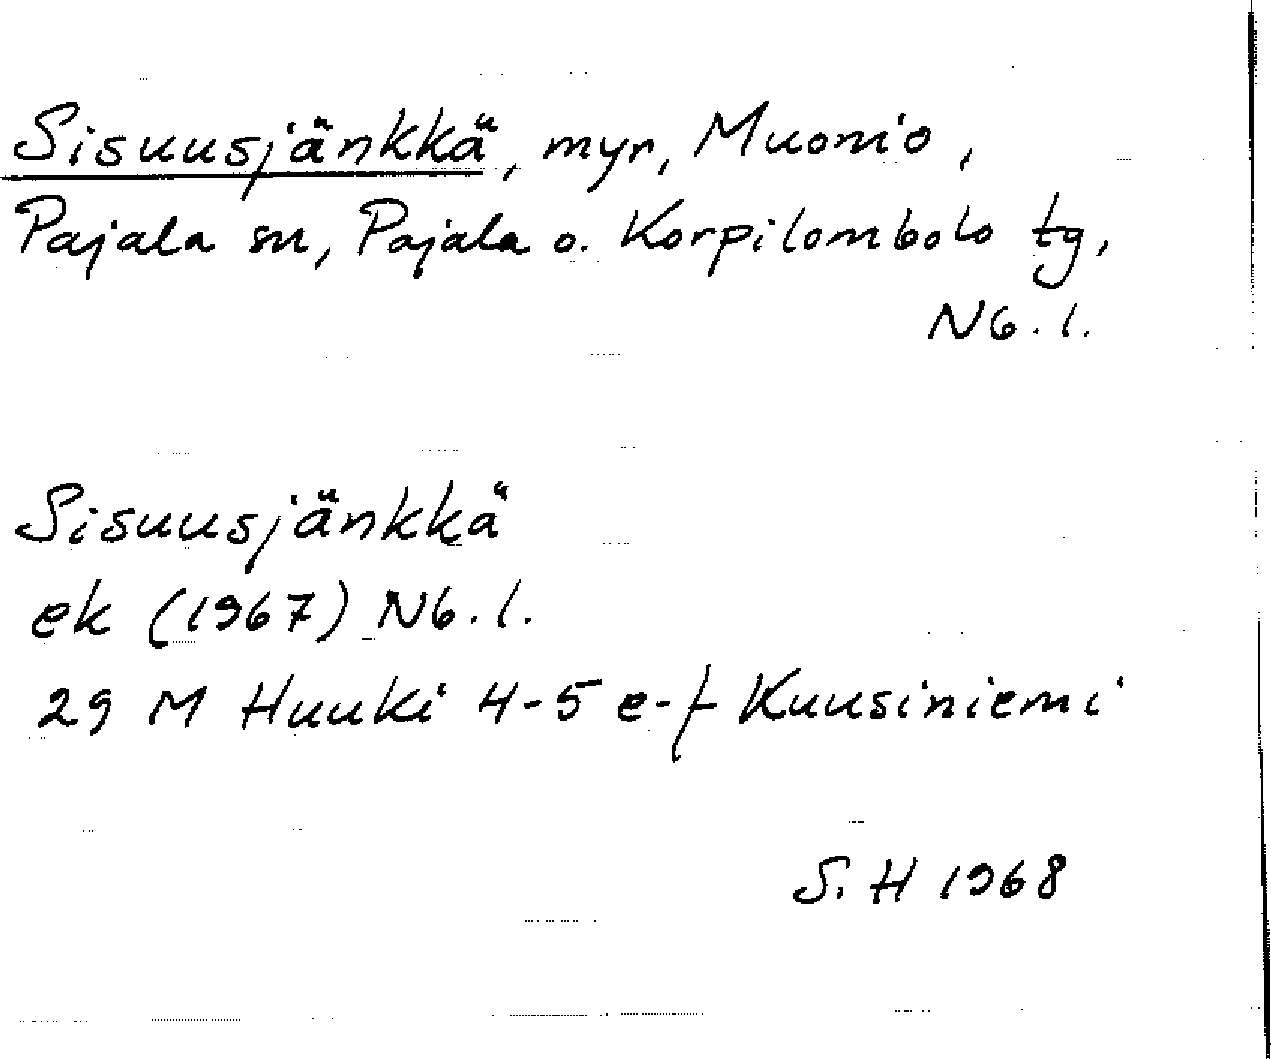 Sisuusjänkkä, myr, Muonio,
Pajala sn, Pajala o. Korpilombolo tg,
Nb. l.
Sisuusjänkkä
ek (1967) Nb. l.
29 M Huuki 4-5 e-f Kuusiniemi
S. H 1968